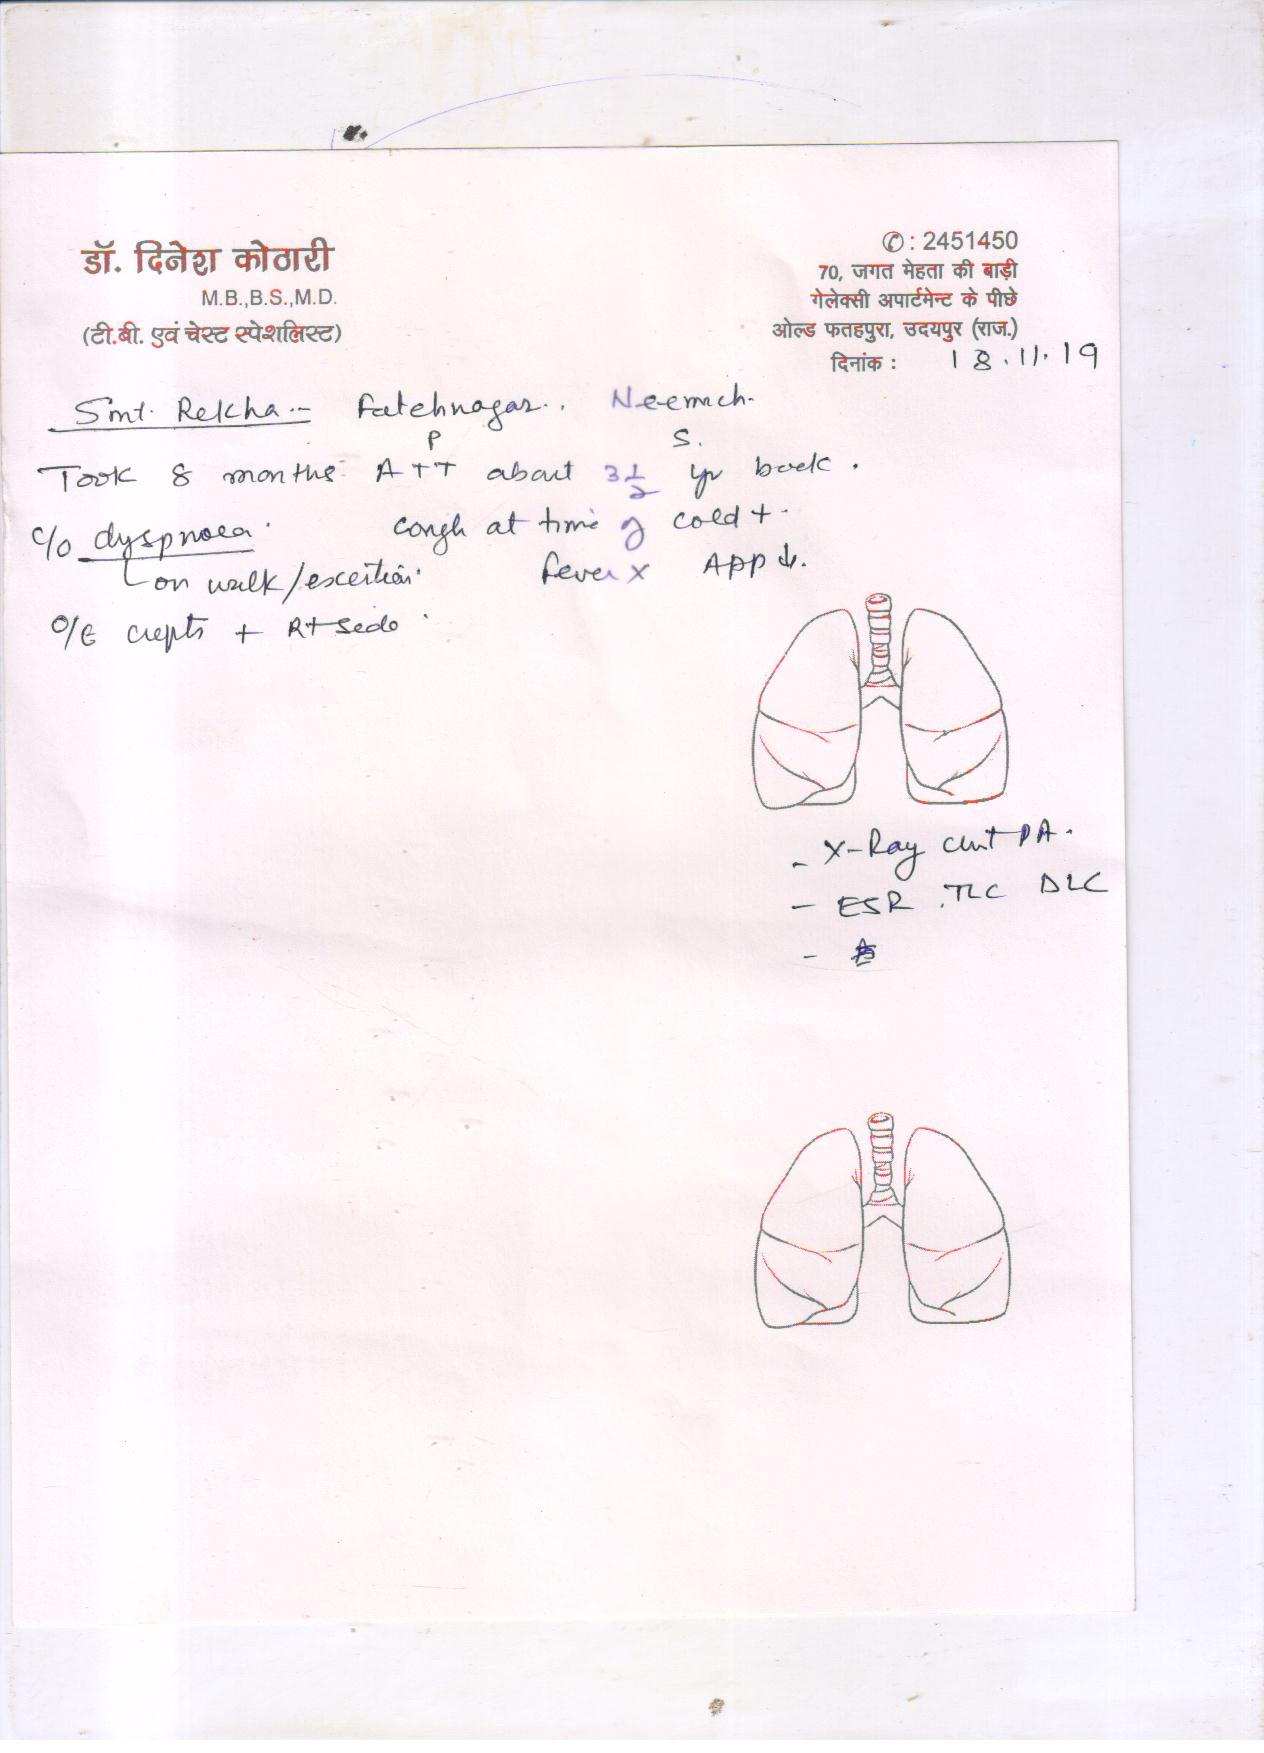 डॉ. दिनेश कोठारी
M.B.,B.S.,M.D.
(टी.बी. एवं चेस्ट स्पेशलिस्ट)
✆ : 2451450
70, जगत मेहता की बाड़ी
गेलेक्सी अपार्टमेन्ट के पीछे
ओल्ड फतहपुरा, उदयपुर (राज.)
दिनांक : 18.11.19
Smt. Rekha - Fatehnagar. Neemuch.
P S.
Took 8 months ATT about 3 1/2 yr back.
C/O dyspnoea. cough at time of cold +.
on walk/exertion. fever x App ↓.
O/E crepts + Rt side.
- X-Ray chest PA.
- ESR. TLC DLC
-